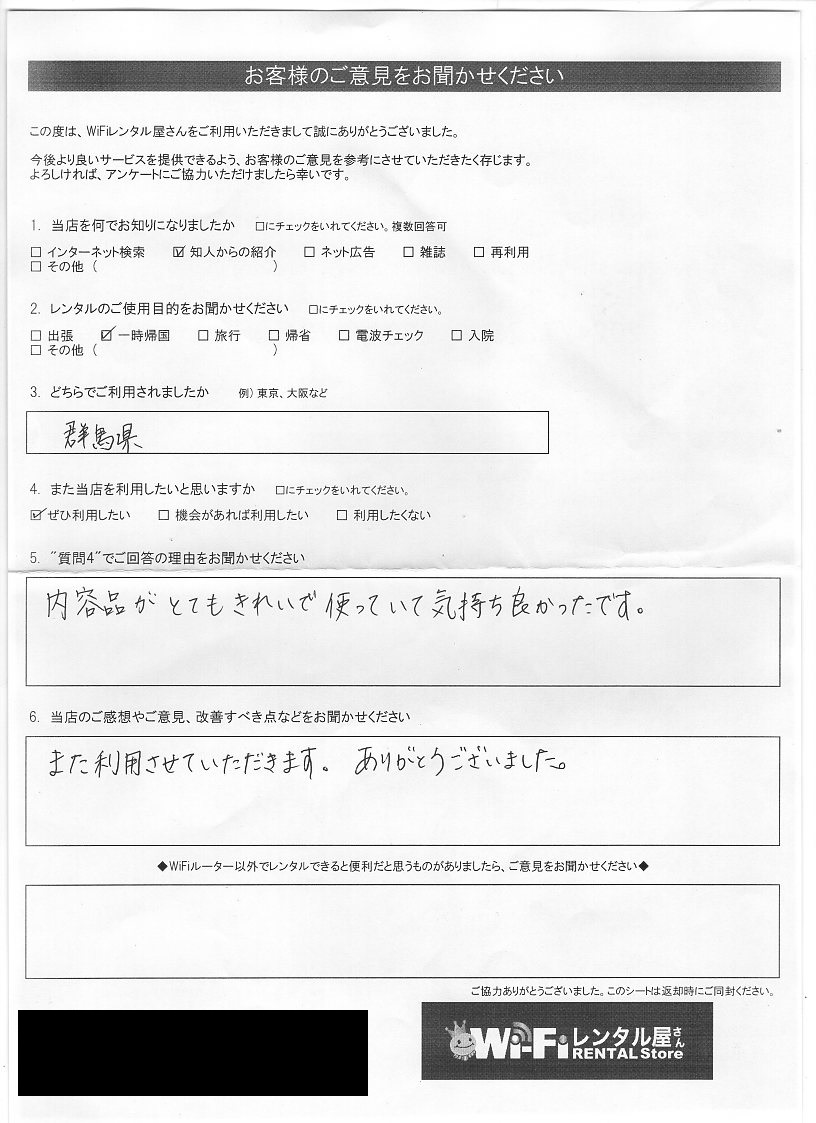 お客様のご意見をお聞かせください
この度は、WiFiレンタル屋さんをご利用いただきまして誠にありがとうございました。
今後より良いサービスを提供できるよう、お客様のご意見を参考にさせていただきたく存じます。
よろしければ、アンケートにご協力いただけましたら幸いです。
1. 当店を何でお知りになりましたか □にチェックをいれてください。複数回答可
□ インターネット検索 ☑ 知人からの紹介 □ ネット広告 □ 雑誌 □ 再利用
□ その他 ( )
2. レンタルのご使用目的をお聞かせください □にチェックをいれてください。
□ 出張 ☑ 一時帰国 □ 旅行 □ 帰省 □ 電波チェック □ 入院
□ その他 ( )
3. どちらでご利用されましたか 例) 東京、大阪など
群馬県
4. また当店を利用したいと思いますか □にチェックをいれてください。
☑ ぜひ利用したい □ 機会があれば利用したい □ 利用したくない
5. "質問4"でご回答の理由をお聞かせください
内容品がとてもきれいで使っていて気持ち良かったです。
6. 当店のご感想やご意見、改善すべき点などをお聞かせください
また利用させていただきます。 ありがとうございました。
◆WiFiルーター以外でレンタルできると便利だと思うものがありましたら、ご意見をお聞かせください◆
ご協力ありがとうございました。このシートは返却時にご同封ください。
Wi-Fiレンタル屋さん
RENTAL Store